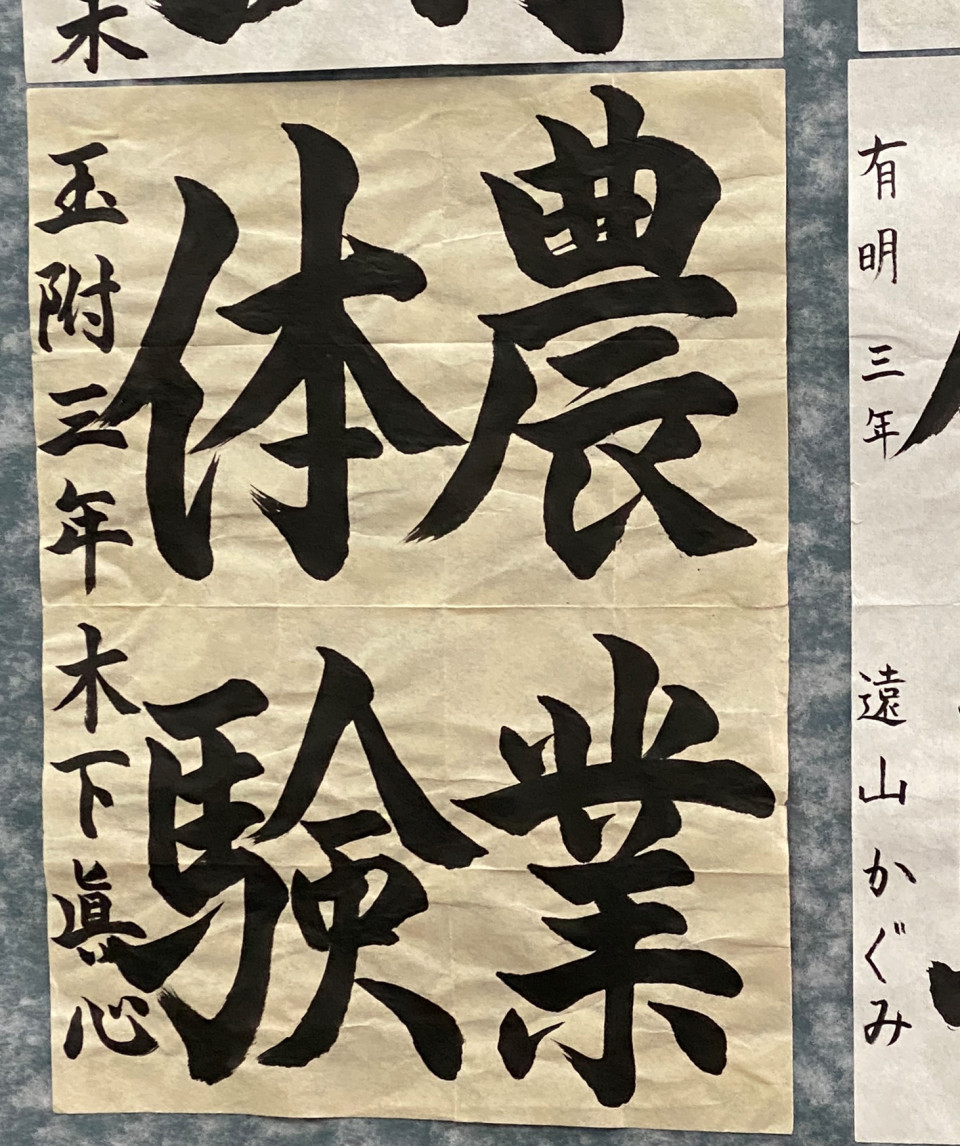 農業
体験
玉附三年 木下眞心
有明 三年 遠山かぐみ
木